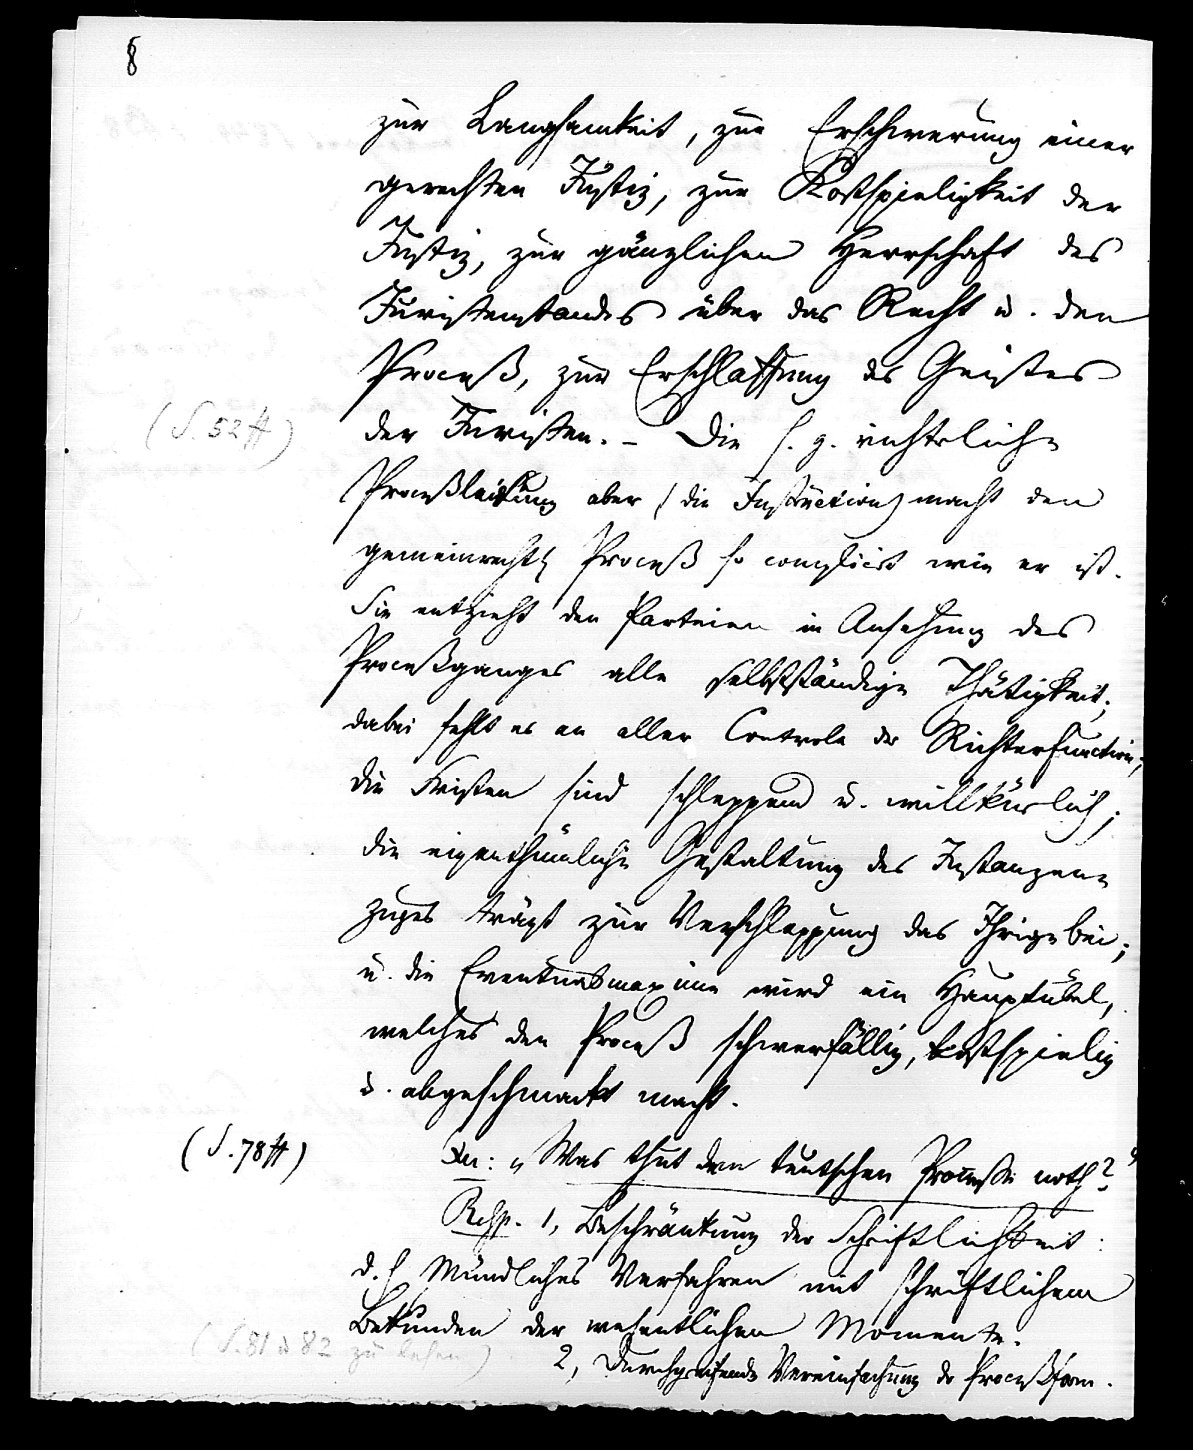 8
zur Langsamkeit, zur Erschwerung einer
gerechten Justiz, zur Kostspieligkeit der
Justiz, zur gänzlichen Herrschaft des
Juristenstandes über das Recht u. den
Proceß, zur Erschlaffung des Geistes
(S. 52 ff)
der Juristen. – Die s. g. richterliche
Proceßleitung aber (die Instruction) macht den
gemeinrechtl Proceß so complicirt wie er ist.
Sie entzieht den Parteien in Ansehung des
Proceßganges alle selbstständige Thätigkeit;
dabei fehlt es an aller Controle der Richterfunction;
die Fristen sind schleppend u. willkürlich;
die eigenthümliche Gestaltung des Instanzen-
zuges trägt zur Verschleppung das Ihrige bei;
u. die Eventualmaxime wird ein Hauptübel,
welches den Proceß schwerfällig, kostspielig
u. abgeschmackt macht.
(S. 78 ff)
„Was thut dem teutschen Processe noth?“
Resp. 1, Beschränkung der Schriftlichkeit:
d. h Mündliches Verfahren mit schriftlichem
Bekunden der wesentlichen Momente.
(S. 81 u 82 zu lesen)
2, Durchgreifende Vereinfachung der Proceßform.